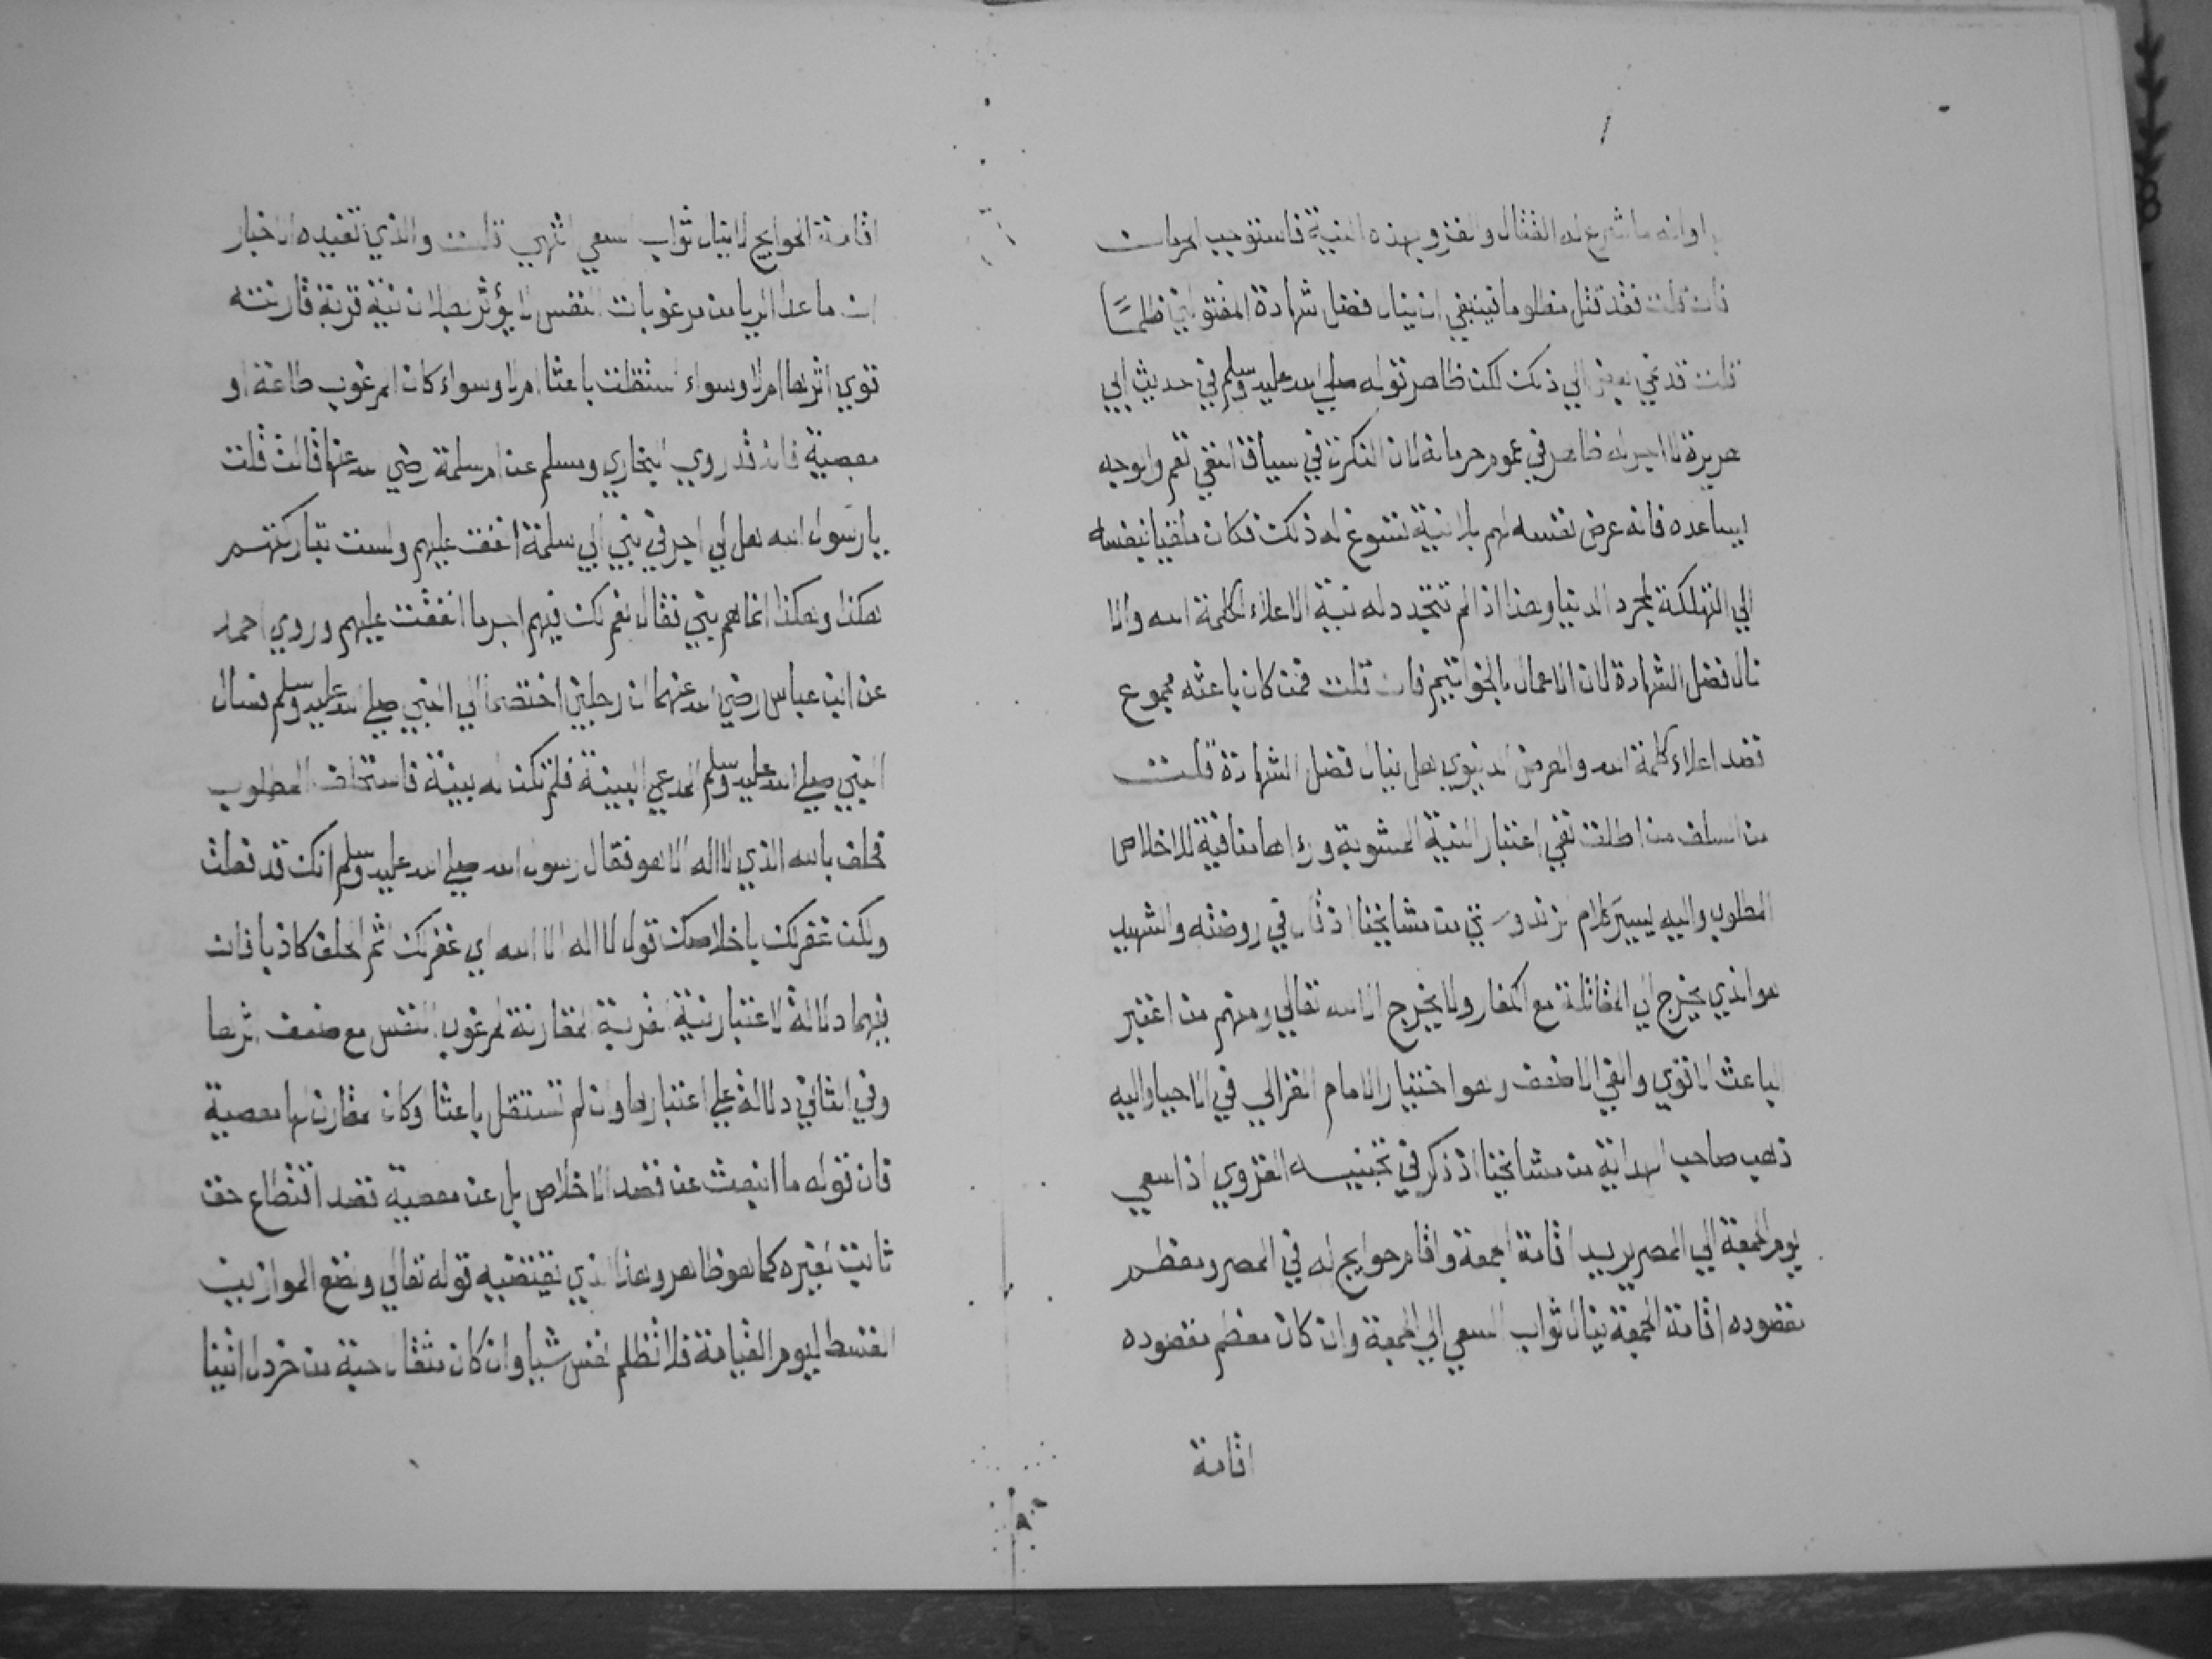 اوانه ما شرع له القتال والغزو بهذه النية فاستوجب الحرمان
فان قلت فقد قتل مظلوما فينبغي ان ينال فضل شهادة المقتولين ظلمًا
قلت قد نحى بعض الي ذلك لكن ظاهر قوله صلي الله عليه وسلم في حديث ابي
هريرة لا اجر له ظاهر في عموم حرمانه لان النكرة في سياق النفي تعم والوجه
يساعده فانه عرض نفسه لهم بلا نية تسوغ له ذلك فكان ملقيا بنفسه
الي التهلكة لمجرد الدنيا وهذا اذا لم تتجدد له نية الاعلاء لكلمة الله والا
نال فضل الشهادة لان الاعمال بالخواتيم فان قلت فمن كان باعثه مجموع
قصد اعلاء كلمة الله والعرض الدنيوي هل ينال فضل الشهادة قلت
من السلف من اطلق نفي اعتبار النية المشوبة وراها منافية للاخلاص
المطلوب واليه يسير كلام من مشايخنا اذ قال في روضته والشهيد
هو الذي يخرج الي المقاتلة مع الكفار ولا يخرج الا لله تعالي ومنهم من اعتبر
الباعث الاقوي والغي الاضعف وهو اختيار الامام الغزالي في الاحيا واليه
ذهب صاحب الهداية من مشايخنا اذ ذكر في تجنيسه القروي اذا سعي
يوم الجمعة الي المصر يريد اقامة الجمعة واقام حوايج له في المصر ومعظم
مقصوده اقامة الجمعة ينال ثواب السعي الي الجمعة وان كان معظم مقصوده
اقامة
اقامة الحوايج لا ينال ثواب السعي انتهي قلت والذي تفيده الاخبار
ان ما عدا الريا من مرغوبات النفس لا يؤثر بطلان نية قربة قارنته
قوي اثرها ام لا وسواء استقلت باعثا ام لا وسواء كان المرغوب طاعة او
معصية فانه قد روي البخاري ومسلم عن ام سلمة رضي الله عنها قالت قلت
يا رسول الله هل لي اجر في بني ابي سلمة انفق عليهم ولست بتاركتهم
هكذا وهكذا انما هم بني فقال نعم لك فيهم اجر ما انفقت عليهم وروي احمد
عن ابن عباس رضي الله عنهما ان رجلين اختصما الي النبي صلي الله عليه وسلم فسال
النبي صلي الله عليه وسلم المدعي البينة فلم تكن له بينة فاستحلف المطلوب
فحلف بالله الذي لا اله الا هو فقال رسول الله صلي الله عليه وسلم انك قد فعلت
ولكن غفر لك باخلاصك قول لا اله الا الله اي غفر لك اثم الحلف كاذبا فان
فيهما دلالة لاعتبار نية القربة المقارنة لمرغوب النفس مع ضعف اثرها
وفي الثاني دلالة علي اعتبارها وان لم تستقل باعثا وكان مقارن لها معصية
فان قوله ما انبعث عن قصد الاخلاص بل عن معصية قصد اقتطاع حق
ثابت لغيره كما هو ظاهر وهذا الذي يقتضيه قوله تعالي ونضع الموازين
القسط ليوم القيامة فلا تظلم نفس شيا وان كان مثقال حبة من خردل اتينا